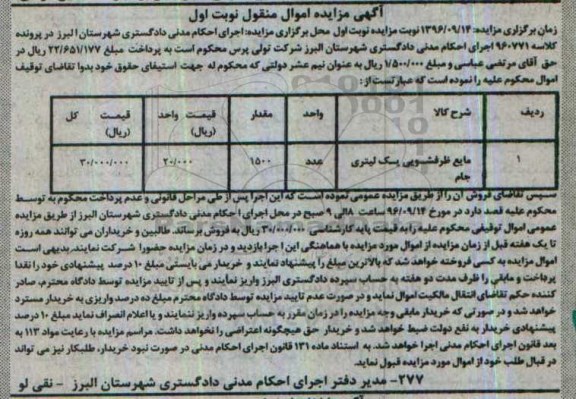 آگهی مزایده اموال منقول نوبت اول
زمان برگزاری مزایده: ۱۳۹۶/۰۹/۱۲ نوبت مزایده نوبت اول محل برگزاری مزایده: اجرای احکام مدنی دادگستری شهرستان البرز در پرونده
کلاسه ۹۶۰۷۷۱ اجرای احکام مدنی دادگستری شهرستان البرز شرکت تولی پرس محکوم است به پرداخت مبلغ ۲۲/۶۵۱/۱۷۷ ریال در
حق آقای مرتضی عباسی و مبلغ ۱/۵۰۰/۰۰۰ ریال به عنوان نیم عشر دولتی که محکوم له جهت استیفای حقوق خود بدوا تقاضای توقیف
اموال محکوم علیه را نموده است که عبارتست از:
ردیف شرح کالا واحد مقدار قیمت واحد (ریال) قیمت کل (ریال)
۱ مایع ظرفشویی یک لیتری جام عدد ۱۵۰۰ ۲۰/۰۰۰ ۳۰/۰۰۰/۰۰۰
سپس تقاضای فروش آن را از طریق مزایده عمومی نموده است که این اجرا پس از طی مراحل قانونی و عدم پرداخت محکوم به توسط
محکوم علیه قصد دارد در مورخ ۹۶/۰۹/۱۲ ساعت ۸الی ۹ صبح در محل اجرای احکام مدنی دادگستری شهرستان البرز از طریق مزایده
عمومی اموال توقیفی محکوم علیه را به قیمت پایه کارشناسی ۳۰/۰۰۰/۰۰۰ ریال به فروش برساند. طالبین و خریداران می توانند همه روزه
تا یک هفته قبل از زمان مزایده از اموال مورد مزایده با هماهنگی این اجرا بازدید و در زمان مزایده حضورا شرکت نمایند.بدیهی است
اموال مزایده به کسی فروخته خواهد شد که بالاترین مبلغ را پیشنهاد نمایند و خریدار می بایستی مبلغ ۱۰ درصد پیشنهادی خود را نقدا
پرداخت و مابقی را ظرف مدت دو هفته به حساب سپرده دادگستری البرز واریز نمایند و پس از تایید مزایده توسط دادگاه محترم، صادر
کننده حکم تقاضای انتقال مالکیت اموال نماید و در صورت عدم تایید مزایده توسط دادگاه محترم مبلغ ده درصد واریزی به خریدار مسترد
خواهد شد و در صورتی که خریدار مابقی وجه مزایده را در زمان مقرر به حساب سپرده واریز ننمایند و یا اعلام انصراف نماید مبلغ ۱۰ درصد
پیشنهادی خریدار به نفع دولت ضبط خواهد شد و خریدار حق هیچگونه اعتراضی را نخواهد داشت. مراسم مزایده با رعایت مواد ۱۱۳ به
بعد قانون اجرای احکام مدنی اجرا خواهد شد. به استناد ماده ۱۳۱ قانون اجرای احکام مدنی در صورت نبود خریدار، طلبکار نیز می تواند
در قبال طلب خود از اموال مورد مزایده قبول نماید.
۲۷۷- مدیر دفتر اجرای احکام مدنی دادگستری شهرستان البرز - نقی لو